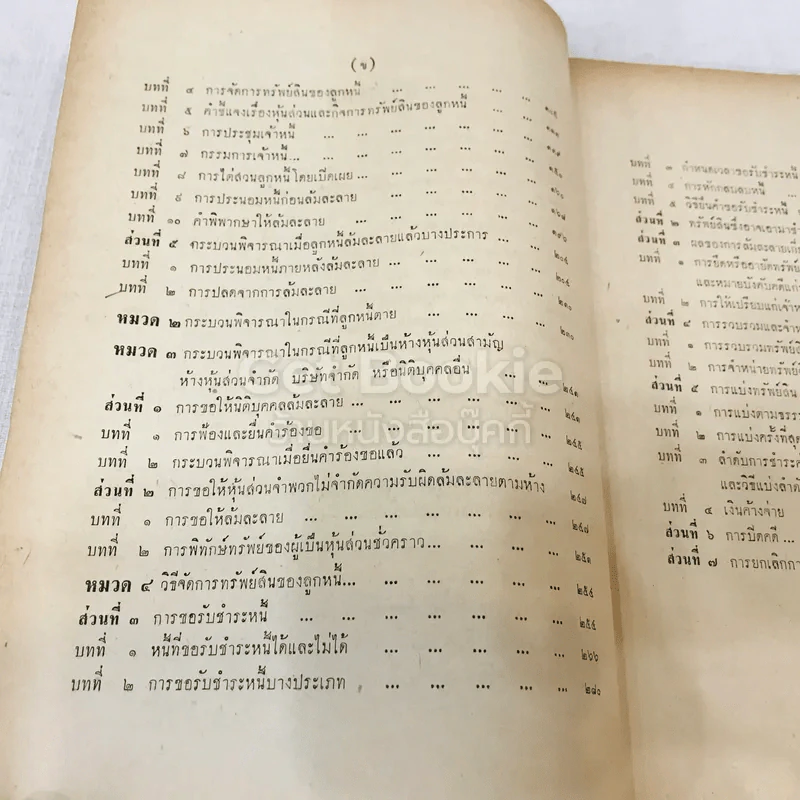 (ข)
บทที่ ๔ การจัดการทรัพย์สินของลูกหนี้ ... ... ... ...
บทที่ ๕ คำชี้แจงเรื่องหุ้นส่วนและกิจการทรัพย์สินของลูกหนี้ ...
บทที่ ๖ การประชุมเจ้าหนี้ ... ... ... ... ...
บทที่ ๗ กรรมการเจ้าหนี้... ... ... ... ... ...
บทที่ ๘ การไต่สวนลูกหนี้โดยเปิดเผย ... ... ... ...
บทที่ ๙ การประนอมหนี้ก่อนล้มละลาย ... ... ... ...
บทที่ ๑๐ คำพิพากษาให้ล้มละลาย ... ... ... ...
ส่วนที่ ๕ กระบวนพิจารณาเมื่อลูกหนี้ล้มละลายแล้วบางประการ ...
บทที่ ๑ การประนอมหนี้ภายหลังล้มละลาย ... ... ... ... ๒๐๔
บทที่ ๒ การปลดจากการล้มละลาย ... ... ... ... ๒๑๐
หมวด ๒ กระบวนพิจารณาในกรณีที่ลูกหนี้ตาย ... ... ... ๒๓๐
หมวด ๓ กระบวนพิจารณาในกรณีที่ลูกหนี้เป็นห้างหุ้นส่วนสามัญ
ห้างหุ้นส่วนจำกัด บริษัทจำกัด หรือนิติบุคคลอื่น ... ... ๒๔๑
ส่วนที่ ๑ การขอให้นิติบุคคลล้มละลาย ... ... ... ... ... ๒๔๑
บทที่ ๑ การฟ้องและยื่นคำร้องขอ ... ... ... ... ... ๒๔๕
บทที่ ๒ กระบวนพิจารณาเมื่อยื่นคำร้องขอแล้ว ... ... ... ๒๔๕
ส่วนที่ ๒ การขอให้หุ้นส่วนจำพวกไม่จำกัดความรับผิดล้มละลายตามห้าง ๒๔๗
บทที่ ๑ การขอให้ล้มละลาย ... ... ... ... ... ... ๒๔๗
บทที่ ๒ การพิทักษ์ทรัพย์ของผู้เป็นหุ้นส่วนชั่วคราว... ... ... ... ๒๕๑
หมวด ๔ วิธีจัดการทรัพย์สินของลูกหนี้... ... ... ... ... ... ๒๕๔
ส่วนที่ ๓ การขอรับชำระหนี้ ... ... ... ... ... ... ... ๒๕๔
บทที่ ๑ หนี้ที่ขอรับชำระหนี้ได้และไม่ได้ ... ... ... ... ... ๒๖๖
บทที่ ๒ การขอรับชำระหนี้บางประเภท ... ... ... ... ... ๒๘๐
บทที่ ๓ กำหนดเวลาขอรับชำระหนี้
บทที่ ๔ การหักกลบลบหนี้ ...
บทที่ ๕ วิธียื่นคำขอรับชำระหนี้
ส่วนที่ ๒ ทรัพย์สินซึ่งอาจเอามาชำ
ส่วนที่ ๓ ผลของการล้มละลายเกี่ย
บทที่ ๑ การยึดหรืออายัดทรัพย์
และหมายบังคับคดีแก่
บทที่ ๒ การให้เปรียบแก่เจ้าห
ส่วนที่ ๔ การรวบรวมและจำห
บทที่ ๑ การรวบรวมทรัพย์สิ
บทที่ ๒ การจำหน่ายทรัพย์สิ
ส่วนที่ ๕ การแบ่งทรัพย์สิน
บทที่ ๑ การแบ่งตามธรร
บทที่ ๒ การแบ่งครั้งที่สุด
บทที่ ๓ ลำดับการชำระค่
และวิธีแบ่งลำดั
บทที่ ๔ เงินค้างจ่าย
ส่วนที่ ๖ การปิดคดี ...
ส่วนที่ ๗ การยกเลิกกา
Get Bookie
ขายหนังสือบุ๊คกี้